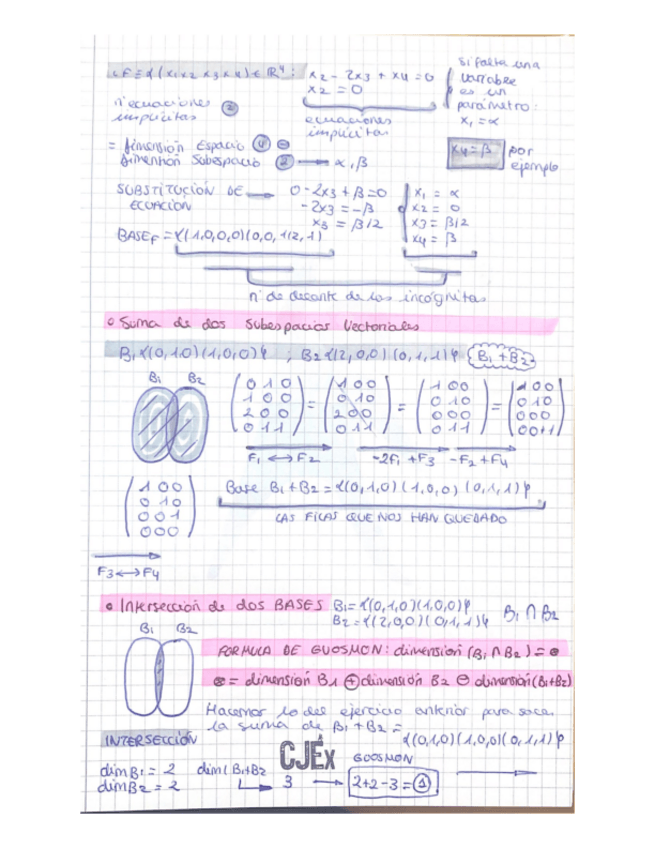 F = {(x1 x2 x3 x4) ∈ ℝ⁴ : x2 - 2x3 + x4 = 0
x2 = 0
si falta una
variable
es un
parámetro:
x1 = α
x4 = β por
ejemplo
nº ecuaciones
implícitas 2
ecuaciones
implícitas
= dimensión Espacio 4 ⊖
dimensión Subespacio 2 → α, β
SUBSTITUCIÓN DE →
ECUACIÓN
0 - 2x3 + β = 0
- 2x3 = -β
x3 = β/2
x1 = α
x2 = 0
x3 = β/2
x4 = β
BASE F = {(1,0,0,0)(0,0,1/2,1)
nº de delante de las incógnitas
o Suma de dos Subespacios Vectoriales
B1 {(0,1,0)(1,0,0)} ; B2 {(2,0,0)(0,1,1)} {B1 + B2}
B1 B2
0 1 0
1 0 0
2 0 0
0 1 1
=
1 0 0
0 1 0
2 0 0
0 1 1
=
1 0 0
0 1 0
0 0 0
0 1 1
=
1 0 0
0 1 0
0 0 0
0 0 +1
F1 ↔ F2
-2F1 + F3
-F2 + F4
1 0 0
0 1 0
0 0 1
0 0 0
Base B1 + B2 = {(0,1,0)(1,0,0)(0,1,1)}
LAS FILAS QUE NOS HAN QUEDADO
F3 ↔ F4
• Intersección de dos BASES B1 = {(0,1,0)(1,0,0)}
B2 = {(2,0,0)(0,1,1)}
B1 ∩ B2
B1 B2
FORMULA DE GUOSMON: dimensión (B1 ∩ B2) =
= dimensión B1 ⊕ dimensión B2 ⊖ dimensión (B1+B2)
Hacemos lo del ejercicio anterior para sacar
la suma de B1 + B2 =
{(0,1,0)(1,0,0)(0,1,1)}
INTERSECCIÓN
CJÉx
GOOSMON
dim B1 = 2 dim (B1+B2
dim B2 = 2 3 → 2+2-3 = 1